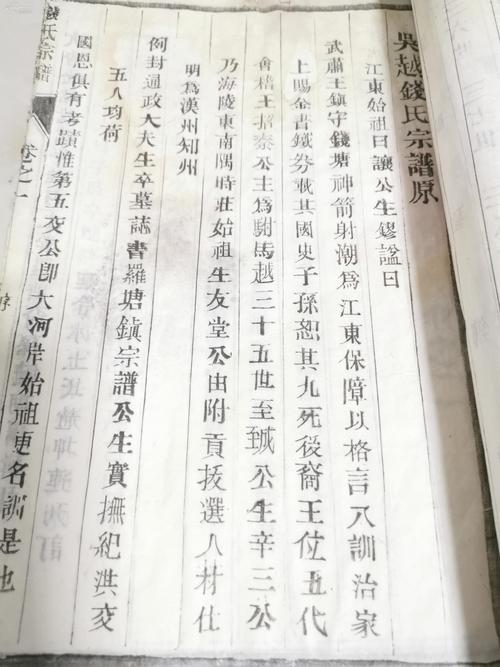 吳越錢氏宗譜原
江東始祖曰讓公生鏐謚曰
武肅王鎮守錢塘神箭射潮為江東保障以格言八訓治家
上賜金書鐵券載其國史子孫恕其九死後裔王位五代
會稽王招泰公主為駙馬越三十五世至誠公生辛三公
乃海陵東南隅時莊始祖生友堂公由附貢拔選人材仕
明為漢州知州
例封通政大夫生卒墓誌書羅塘鎮宗譜公生實撫紀洪交
五人均荷
國恩俱有考蹟惟第五交公卽大河岸始祖更名訓是也
錢氏宗譜
卷之一
序